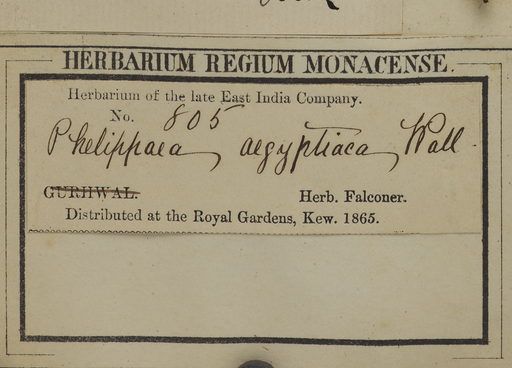 HERBARIUM REGIUM MONACENSE.
Herbarium of the late East India Company.
No. 805
Phelippaea aegyptiaca Wall
GURHWAL.
Herb. Falconer.
Distributed at the Royal Gardens, Kew. 1865.